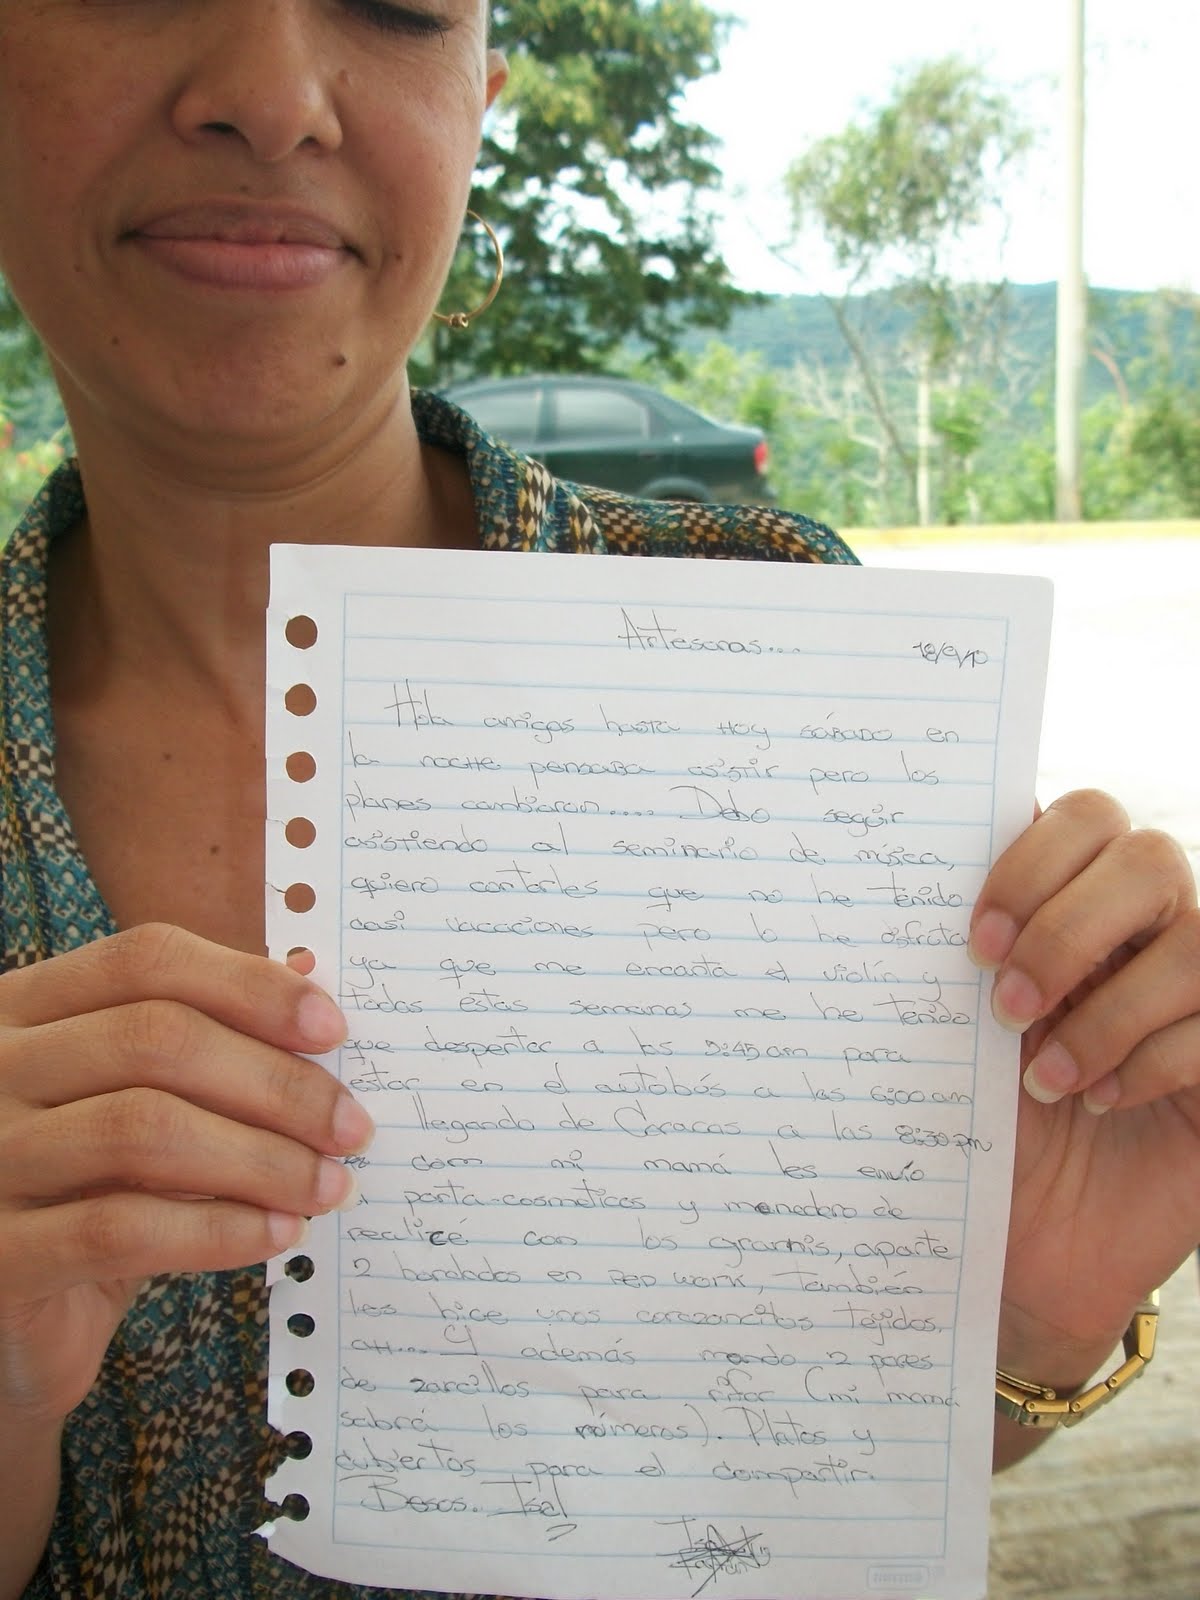 Artesanas...
18/9/10
Hola amigas hasta HOY SÁBADO en
la NOCHE pensaba asistir pero los
planes cambiaron..... Debo seguir
asistiendo al seminario de música,
quiero contarles que no he tenido
casi vacaciones pero lo he disfruta
ya que me encanta el violín y
todas estas semanas me he tenido
que despertar a las 5:45 am para
estar en el autobús a las 6:00 am
llegando de Caracas a las 8:30 pm
com mi mamá les envío
porta-cosmeticos y monedero de
realicé con los gramis, aparte
2 bordados en RED WORK, también
les hice unos corazoncitos tejidos.
AH... Y además mando 2 pares
de zarcillos para rifar (mi mamá
sabrá los números). Platos y
cubiertos para el compartir.
Besos. Isa
norma